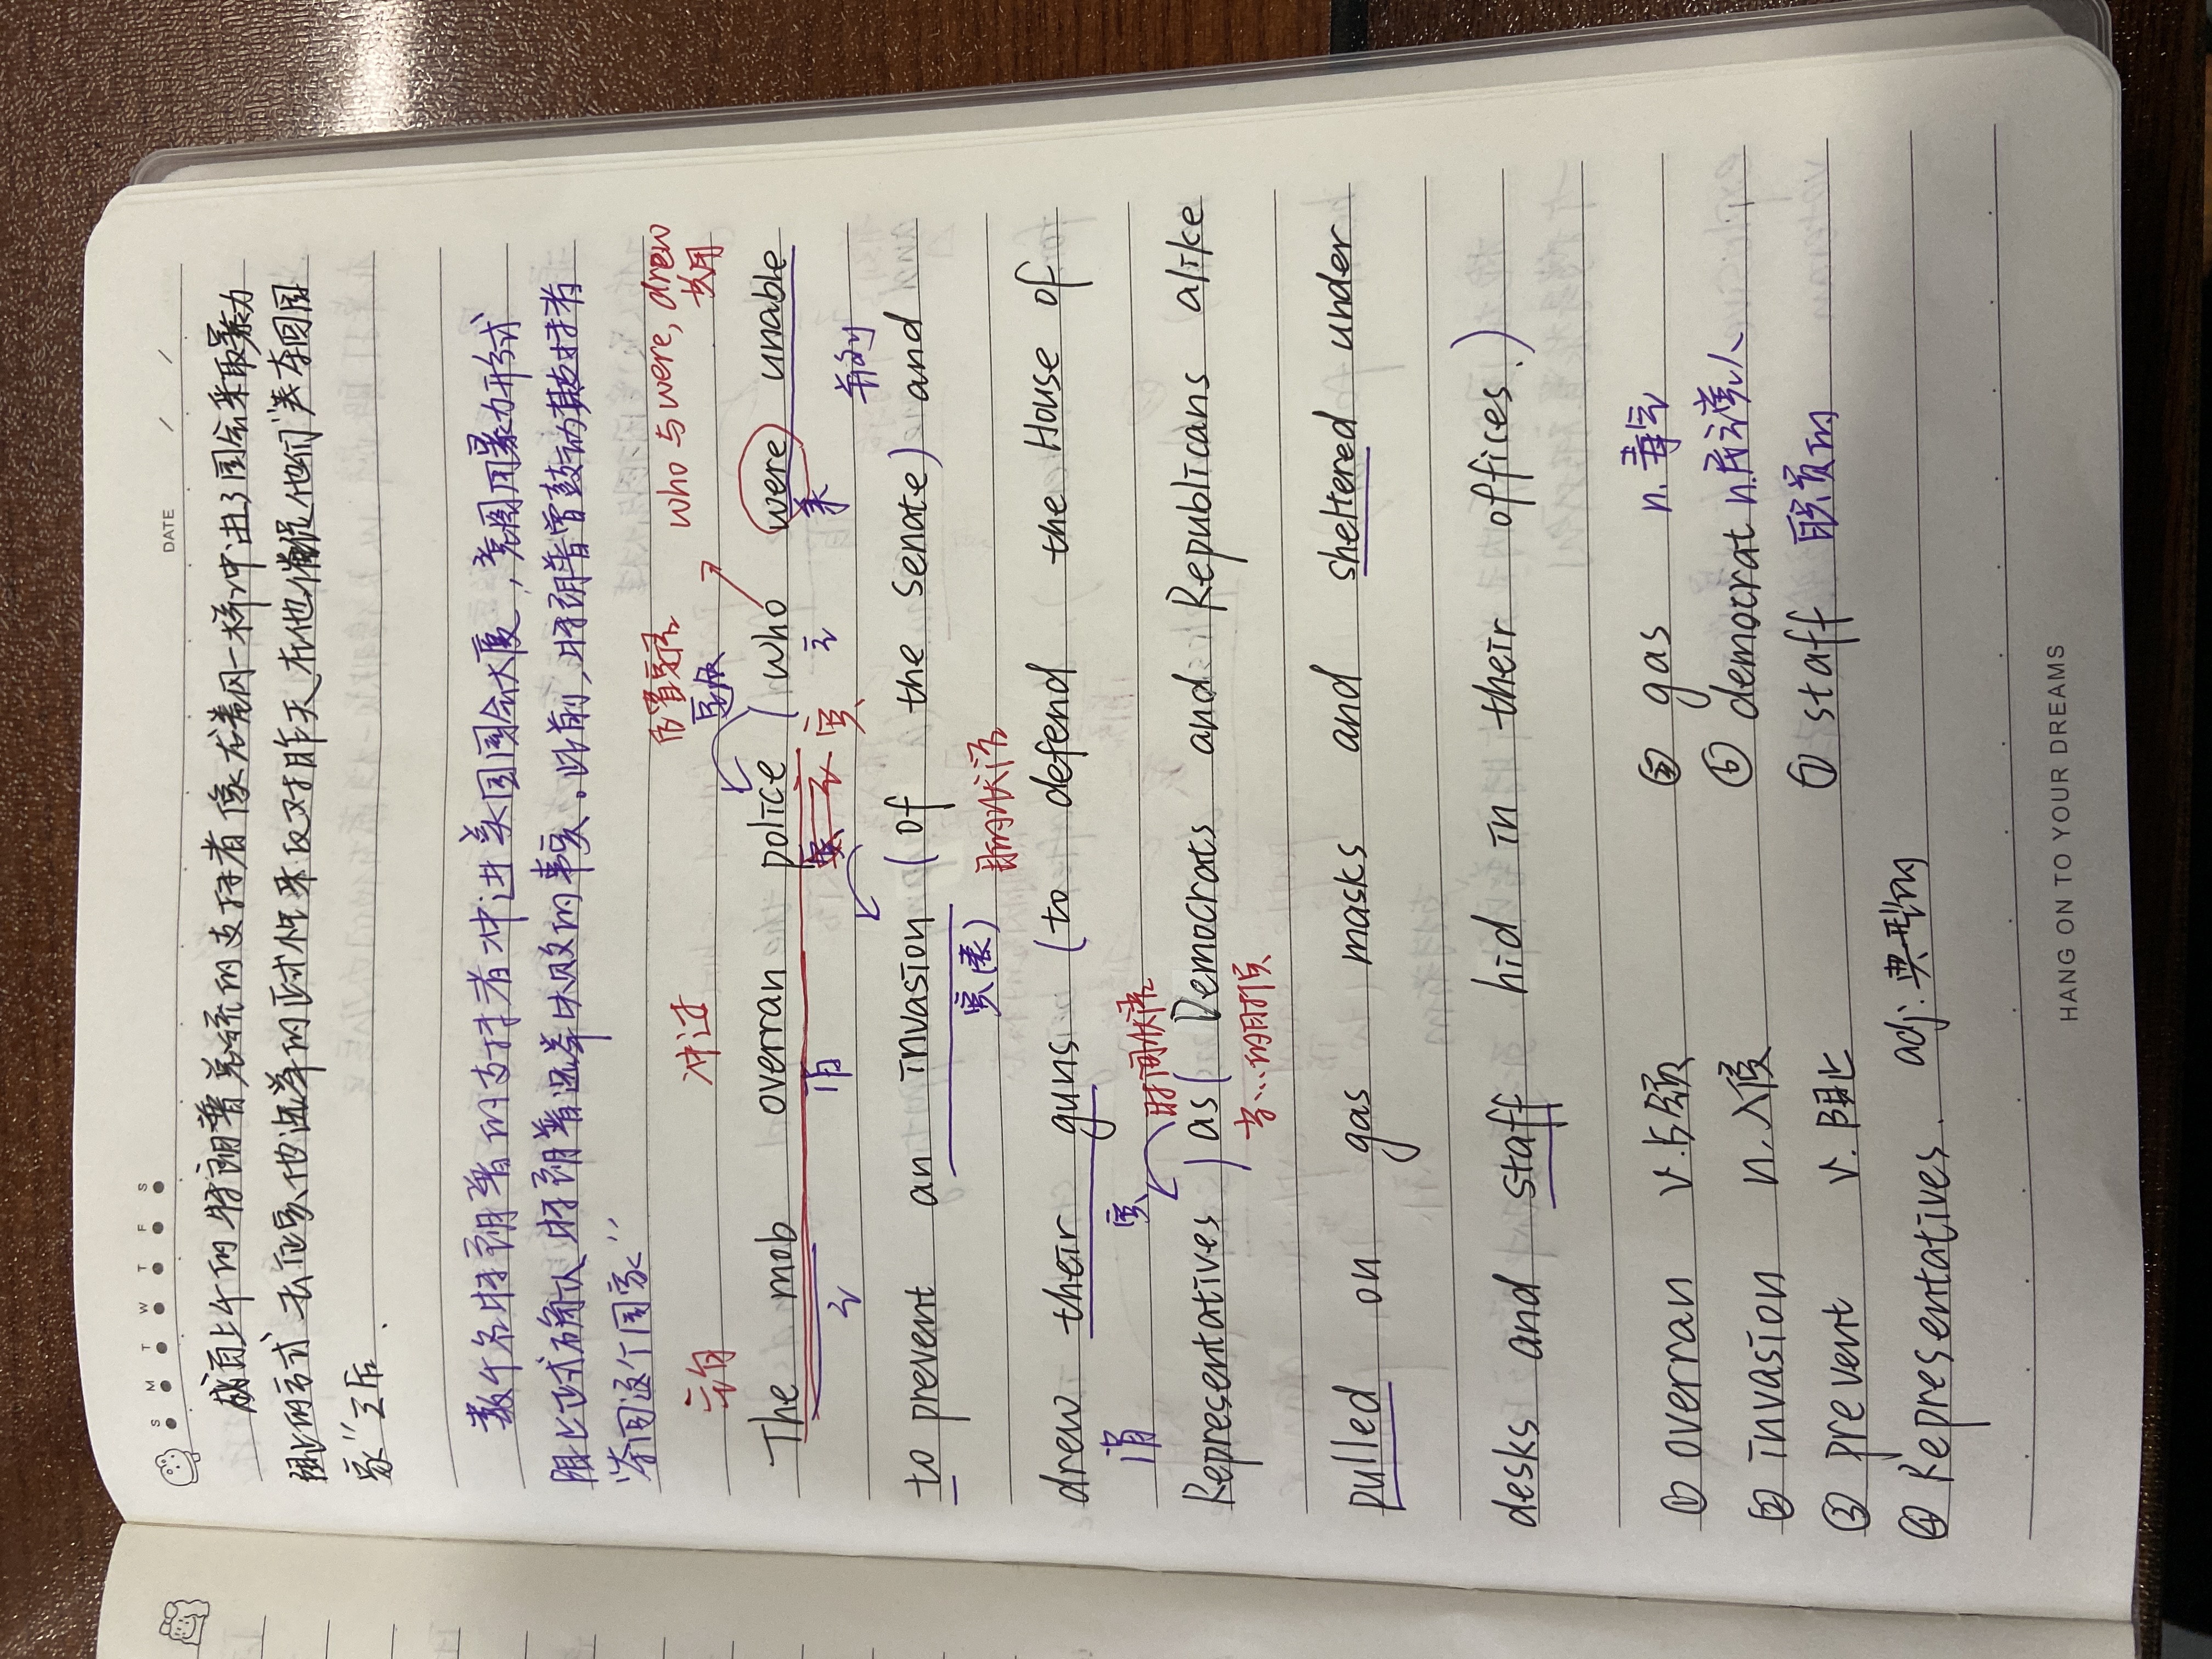 S M T W T F S
DATE / /
成百上千的特朗普总统的支持者像龙卷风一样冲进了国会采取暴力
阻止的方式去证实他选举的正式性来反对昨天在他催促他们"夺回国
家"之后.
数千名特朗普的支持者冲进美国国会大厦，意图用暴力形式
阻止正式确认特朗普选举失败的事实。此前，特朗普曾鼓动其支持者
"夺回这个国家"
冲过 后置定语 who 与 were, drew
定从 共用
The mob overran police (who were unable
主 谓 宾 主 系
并列
to prevent an invasion (of the Senate) and
宾(表) 目的状语
drew their guns (to defend the House of
谓 宾 时间状语
Representatives ) as( Democrats and Republicans alike
当...的时候
pulled on gas masks and sheltered under
desks and staff hid in their offices.)
① overran v.占领 ⑤ gas n.毒气
② invasion n.入侵 ⑥ democrat n.民主党人
③ prevent v.阻止 ⑦ staff 职员的
④ Representatives. adj.典型的
HANG ON TO YOUR DREAMS